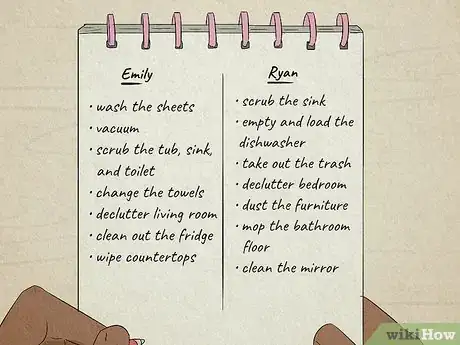 Emily
• wash the sheets
• vacuum
• scrub the tub, sink,
and toilet
• change the towels
• declutter living room
• clean out the fridge
• wipe countertops
Ryan
• scrub the sink
• empty and load the
dishwasher
• take out the trash
• declutter bedroom
• dust the furniture
• mop the bathroom
floor
• clean the mirror
wikiHow